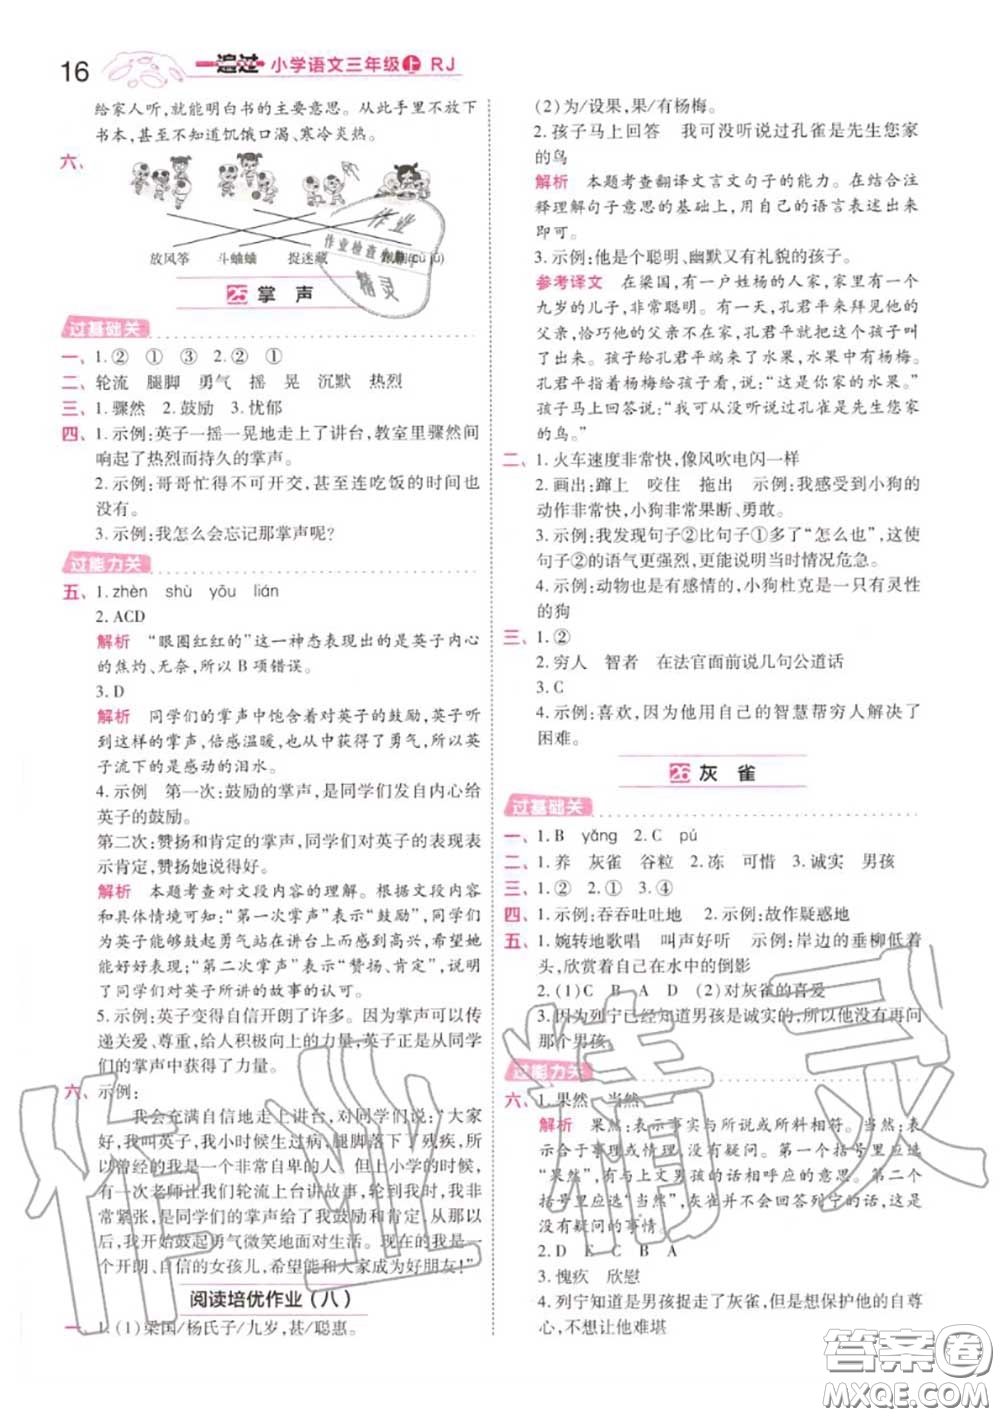 16
一遍过 小学语文三年级上 RJ
给家人听,就能明白书的主要意思。从此手里不放下
书本,甚至不知道饥饿口渴、寒冷炎热。
六、
放风筝 斗蛐蛐 捉迷藏 (cù jū)
25 掌 声
过基础关
一、1.② ① ③ 2.② ①
二、轮流 腿脚 勇气 摇 晃 沉默 热烈
三、1.骤然 2.鼓励 3.忧郁
四、1.示例:英子一摇一晃地走上了讲台,教室里骤然间
响起了热烈而持久的掌声。
2.示例:哥哥忙得不可开交,甚至连吃饭的时间也
没有。
3.示例:我怎么会忘记那掌声呢?
过能力关
五、1. zhèn shù yōu lián
2. ACD
解析 “眼圈红红的”这一神态表现出的是英子内心
的焦灼、无奈,所以 B 项错误。
3. D
解析 同学们的掌声中饱含着对英子的鼓励,英子听
到这样的掌声,倍感温暖,也从中获得了勇气,所以英
子流下的是感动的泪水。
4.示例 第一次:鼓励的掌声,是同学们发自内心给
英子的鼓励。
第二次:赞扬和肯定的掌声,同学们对英子的表现表
示肯定,赞扬她说得好。
解析 本题考查对文段内容的理解。根据文段内容
和具体情境可知:“第一次掌声”表示“鼓励”,同学们
为英子能够鼓起勇气站在讲台上而感到高兴,希望她
能好好表现;“第二次掌声”表示“赞扬、肯定”,说明
了同学们对英子所讲的故事的认可。
5.示例:英子变得自信开朗了许多。因为掌声可以传
递关爱、尊重,给人积极向上的力量,英子正是从同学们
的掌声中获得了力量。
六、示例:
我会充满自信地走上讲台,对同学们说:“大家
好,我叫英子,我小时候生过病,腿脚落下了残疾,所
以曾经的我是一个非常自卑的人。但上小学的时候,
有一次老师让我们轮流上台讲故事,轮到我时,我非
常紧张,是同学们的掌声给了我鼓励和肯定,从那以
后,我开始鼓起勇气微笑地面对生活。现在的我是一
个开朗、自信的女孩儿,希望能和大家成为好朋友!”
阅读培优作业(八)
一、1.(1)梁国/杨氏子/九岁,甚/聪惠。
(2)为/设果,果/有杨梅。
2.孩子马上回答 我可没听说过孔雀是先生您家
的鸟
解析 本题考查翻译文言文句子的能力。在结合注
释理解句子意思的基础上,用自己的语言表述出来
即可。
3.示例:他是个聪明、幽默又有礼貌的孩子。
参考译文 在梁国,有一户姓杨的人家,家里有一个
九岁的儿子,非常聪明。有一天,孔君平来拜见他的
父亲,恰巧他的父亲不在家,孔君平就把这个孩子叫
了出来。孩子给孔君平端来了水果,水果中有杨梅。
孔君平指着杨梅给孩子看,说:“这是你家的水果。”
孩子马上回答说:“我可从没听说过孔雀是先生您家
的鸟。”
二、1.火车速度非常快,像风吹电闪一样
2.画出:蹿上 咬住 拖出 示例:我感受到小狗的
动作非常快,小狗非常果断、勇敢。
3.示例:我发现句子②比句子①多了“怎么也”,使
句子②的语气更强烈,更能说明当时情况危急。
4.示例:动物也是有感情的,小狗杜克是一只有灵性
的狗
三、1.②
2.穷人 智者 在法官面前说几句公道话
3. C
4.示例:喜欢,因为他用自己的智慧帮穷人解决了
困难。
26 灰 雀
过基础关
一、1. B yǎng 2. C pú
二、1.养 灰雀 谷粒 2.冻 可惜 3.诚实 男孩
三、1.② 2.① 3.④
四、1.示例:吞吞吐吐地 2.示例:故作疑惑地
五、1.婉转地歌唱 叫声好听 示例:岸边的垂柳低着
头,欣赏着自己在水中的倒影
2.(1)C B A D (2)对灰雀的喜爱
3.因为列宁已经知道男孩是诚实的,所以他没有再问
那个男孩
过能力关
六、1.果然 当然
解析 果然:表示事实与所说或所料相符。当然:表
示合于事理或情理,没有疑问。第一个括号里应选
“果然”,有与上文男孩的话相呼应的意思。第二个
括号里应选“当然”,灰雀并不会回答列宁的话,这是
没有疑问的事情。
2. D E C B A
3.愧疚 欣慰
4.列宁知道是男孩捉走了灰雀,但是想保护他的自尊
心,不想让他难堪
作业
作业检查
精灵
作业精灵
答案圈
MXQE.COM